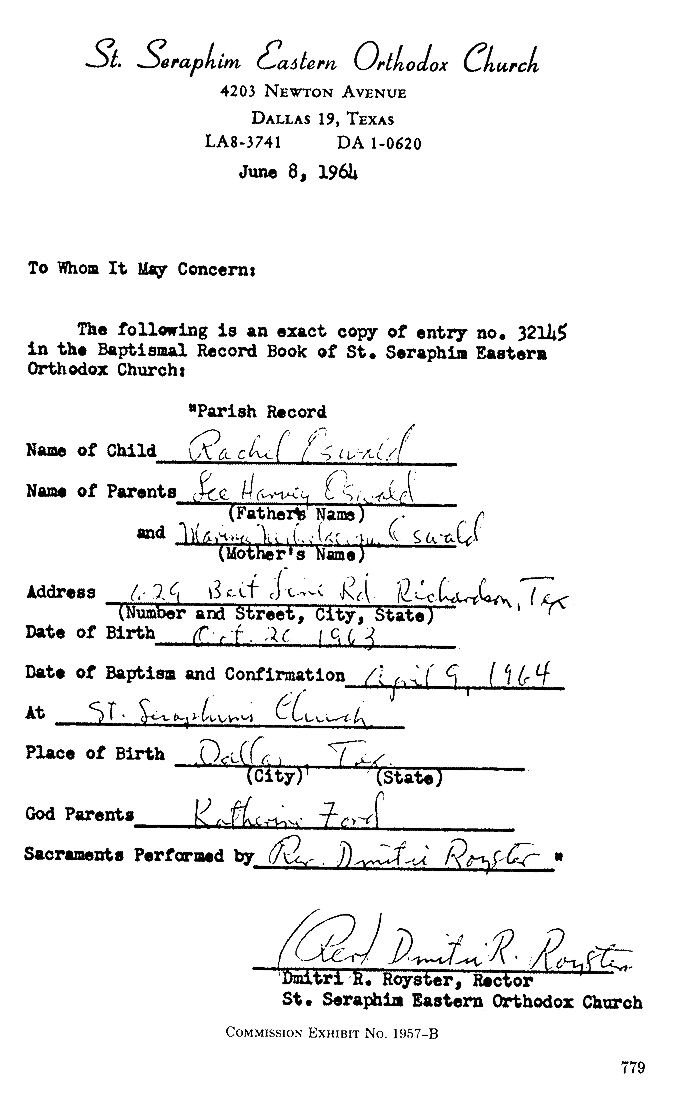 St. Seraphim Eastern Orthodox Church
4203 NEWTON AVENUE
DALLAS 19, TEXAS
LA8-3741 DA 1-0620
June 8, 1964
To Whom It May Concern:
The following is an exact copy of entry no. 32145
in the Baptismal Record Book of St. Seraphim Eastern
Orthodox Church:
"Parish Record
Name of Child Rachel Oswald
Name of Parents Lee Harvey Oswald
(Father's Name)
and Marina Oswald
(Mother's Name)
Address 629 Belt Line Rd. Richardson, Tex
(Number and Street, City, State)
Date of Birth Oct. 20 1963
Date of Baptism and Confirmation April 9, 1964
At St. Seraphim's Church
Place of Birth Dallas, Tex.
(City) (State)
God Parents Katherine Ford
Sacraments Performed by Rev. Dmitri Royster "
(Rev) Dmitri R. Royster
Dmitri R. Royster, Rector
St. Seraphim Eastern Orthodox Church
COMMISSION EXHIBIT NO. 1957-B
779